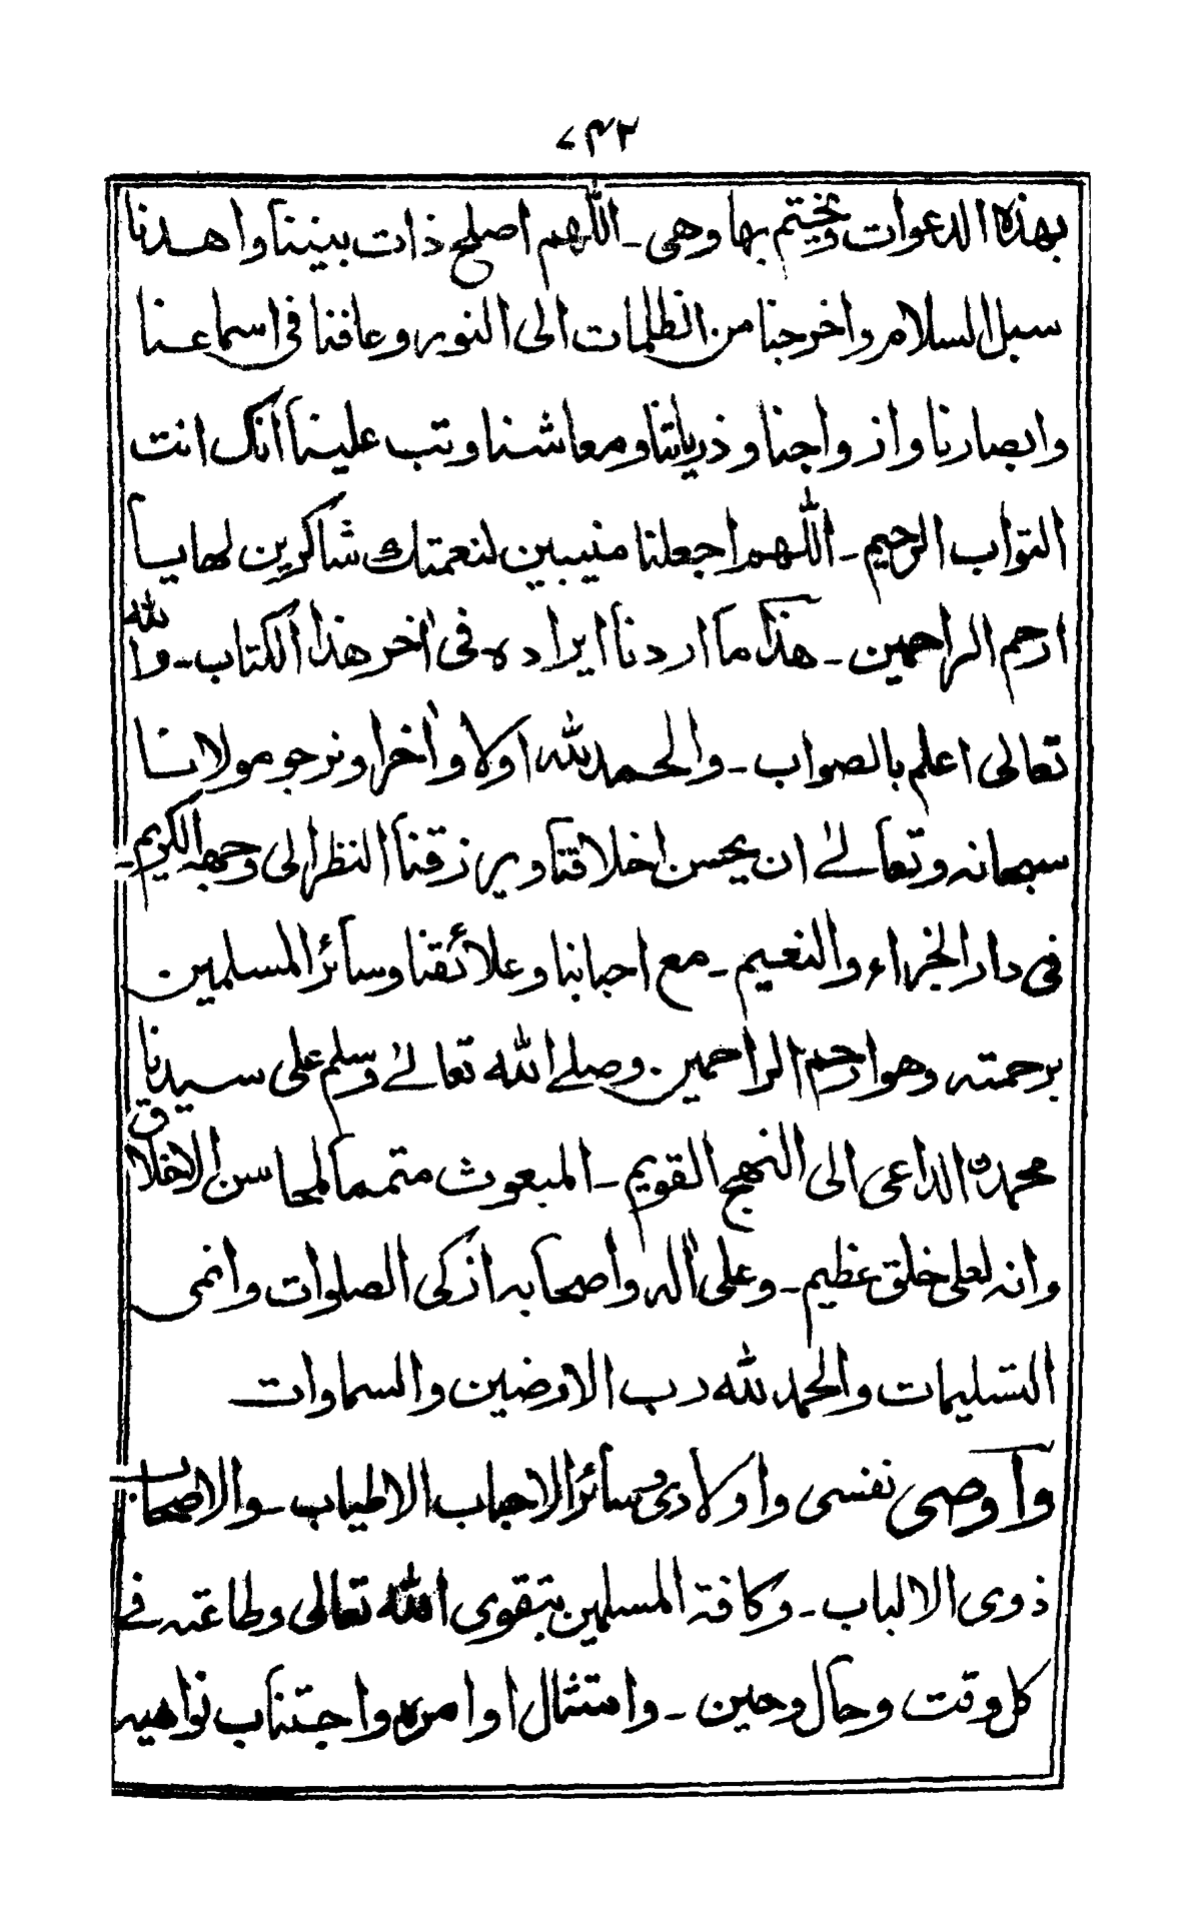 ٧٤٢
بهذه الدعوات ويختم بها وهى ـ اللّهم اصلح ذات بيننا واهدنا
سبل السلام واخرجنا من الظلمات الى النور وعافنا فى اسماعنا
وابصارنا وازواجنا وذرياتنا ومعاشنا وتب علينا انك انت
التواب الرحيم ـ اللّهم اجعلنا منيبين لنعمتك شاكرين لها يا
ارحم الراحمين ـ هذا ما اردنا ايراده فى اٰخر هذا الكتاب ـ والله
تعالى اعلم بالصواب ـ والحمد لله اولا واٰخرا ونرجو مولانا
سبحانه وتعالىٰ ان يحسن اخلاقنا ويرزقنا النظر الى وجهه الكريم ـ
فى دار الجزاء والنعيم ـ مع احبابنا وعلائقنا وسائر المسلمين
برحمته وهو ارحم الراحمين . وصلے الله تعالىٰ وسلم على سيدنا
محمدن الداعى الى النهج القويم ـ المبعوث متمما لمحاسن الاخلاق
وانه لعلى خلق عظيم ـ وعلى اٰله واصحابه ازكى الصلوات وانمى
التسليمات والحمد لله رب الارضين والسماوات
واوصى نفسى واولادى وسائر الاحباب الاطياب ـ والاصحاب
ذوى الالباب ـ وكافة المسلمين بتقوى الله تعالى وطاعته فے
كل وقت وحال وحين ـ وامتثال اوامره واجتناب نواهيه